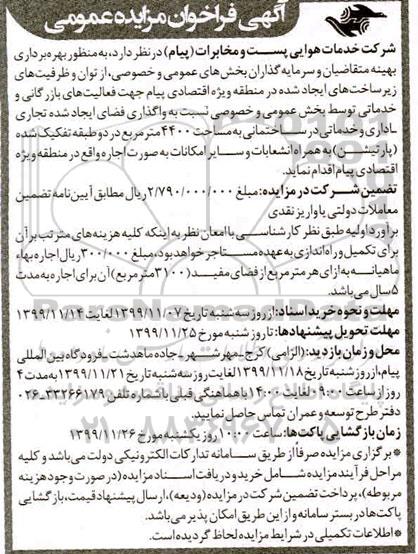 آگهی فراخوان مزایده عمومی
شرکت خدمات هوایی پست و مخابرات (پیام) در نظر دارد، به منظور بهره برداری
بهینه متقاضیان و سرمایه گذاران بخش های عمومی و خصوصی، از توان و ظرفیت های
زیرساخت های ایجاد شده در منطقه ویژه اقتصادی پیام جهت فعالیت های بازرگانی و
خدماتی توسط بخش عمومی و خصوصی نسبت به واگذاری فضای ایجاد شده تجاری
ـ اداری و خدماتی در ساختمانی به مساحت ۴۴۰۰ مترمربع در دو طبقه تفکیک شده
(پارتیشن) به همراه انشعابات و سایر امکانات به صورت اجاره واقع در منطقه ویژه
اقتصادی پیام اقدام نماید.
تضمین شرکت در مزایده: مبلغ ۲/۷۹۰/۰۰۰/۰۰۰ ریال مطابق آیین نامه تضمین
معاملات دولتی یا واریز نقدی
برآورد اولیه طبق نظر کارشناسی با امعان نظر به اینکه کلیه هزینه های مترتب بر آن
برای تکمیل و راه اندازی به عهده مستاجر خواهد بود، مبلغ ۳۰۰/۰۰۰ ریال اجاره بهاء
ماهیانه به ازای هر مترمربع از فضای مفید (۳۱۰۰ مترمربع) آن برای اجاره به مدت
۵ سال می باشد.
مهلت و نحوه خرید اسناد: از روز سه شنبه تاریخ ۱۳۹۹/۱۱/۰۷ لغایت ۱۳۹۹/۱۱/۱۴
مهلت تحویل پیشنهادها: تا روز شنبه مورخ ۱۳۹۹/۱۱/۲۵
محل و زمان بازدید: (الزامی) کرج ـ مهرشهر ـ جاده ماهدشت ـ فرودگاه بین المللی
پیام، از روز شنبه تاریخ ۱۳۹۹/۱۱/۱۸ لغایت روز سه شنبه تاریخ ۱۳۹۹/۱۱/۲۱ به مدت ۴
روز از ساعت ۰۹:۰۰ لغایت ۱۴:۰۰ با هماهنگی قبلی با شماره تلفن ۳۳۲۶۶۱۷۹-۰۲۶
دفتر طرح توسعه و عمران تماس حاصل نمایید.
زمان بازگشایی پاکت ها: ساعت ۱۰:۰۰ روز یکشنبه مورخ ۱۳۹۹/۱۱/۲۶
* برگزاری مزایده صرفاً از طریق سامانه تدارکات الکترونیکی دولت می باشد و کلیه
مراحل فرآیند مزایده شامل خرید و دریافت اسناد مزایده (در صورت وجود هزینه
مربوطه)، پرداخت تضمین شرکت در مزایده (ودیعه)، ارسال پیشنهاد قیمت، بازگشایی
پاکت ها در بستر سامانه و از این طریق امکان پذیر می باشد.
* اطلاعات تکمیلی در شرایط مزایده لحاظ گردیده است.